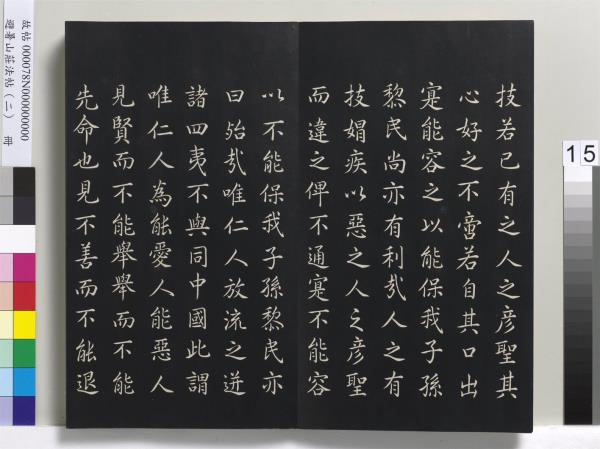 技若己有之人之彥聖其
心好之不啻若自其口出
寔能容之以能保我子孫
黎民尚亦有利哉人之有
技媢疾以惡之人之彥聖
而違之俾不通寔不能容
以不能保我子孫黎民亦
曰殆哉唯仁人放流之迸
諸四夷不與同中國此謂
唯仁人為能愛人能惡人
見賢而不能舉舉而不能
先命也見不善而不能退
故帖 000078N000000000
避暑山莊法帖(二) 冊
15